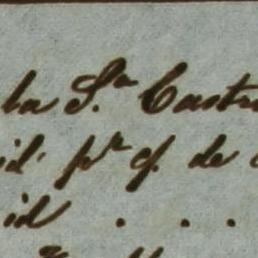 la S.ra Castr
id. pr. cj. de
id . . .